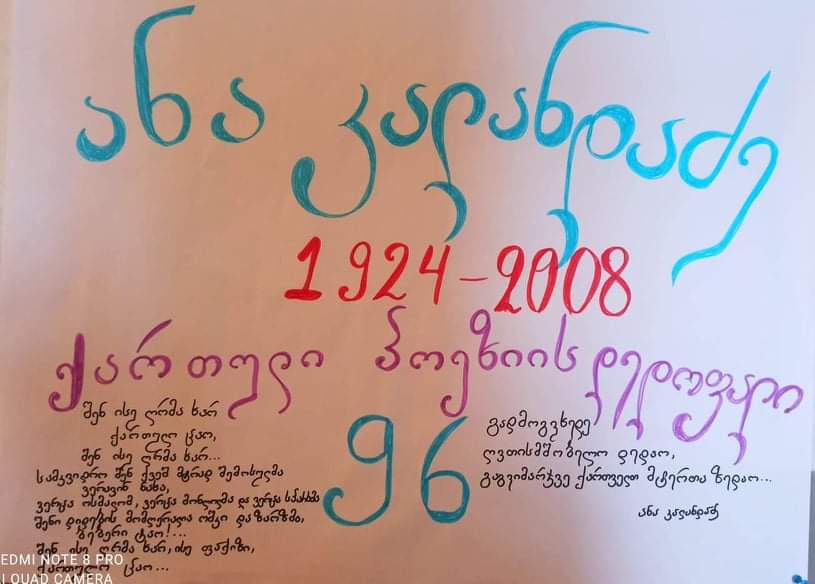 ანა კალანდაძე
1924-2008
ქართული პოეზიის დედოფალი
96
შენ ისე ღრმა ხარ
ქართულო ცაო,
შენ ისე ღრმა ხარ...
სამკვიდრო შენ ქვეშ მტრად შემოსულმა
ვერავინ ნახა,
ვერცა ოსმალომ, ვერცა მონღოლმა და ვერცა სპასხმა
შენი დიდების მომღერალი ომკი დაზარზმა,
ბებერი ტაო!...
შენ ისე ღრმა ხარ, ისე ფაქიზი,
ქართულო ცაო...
გადმოგვხედე
ღვთისმშობელო დედაო,
გაგვიმარჯვე ქართველთ მტერთა ზედაო...
ანა კალანდაძე
EDMI NOTE 8 PRO
I QUAD CAMERA